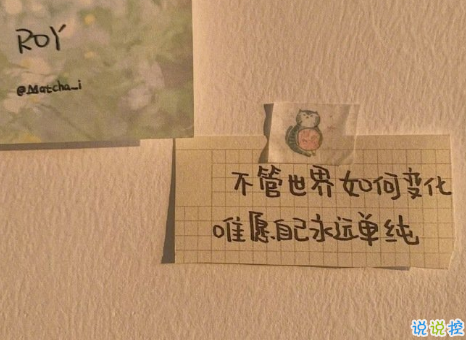 ROY
@Matcha_i
不管世界如何变化
唯愿自己永远单纯
说说控